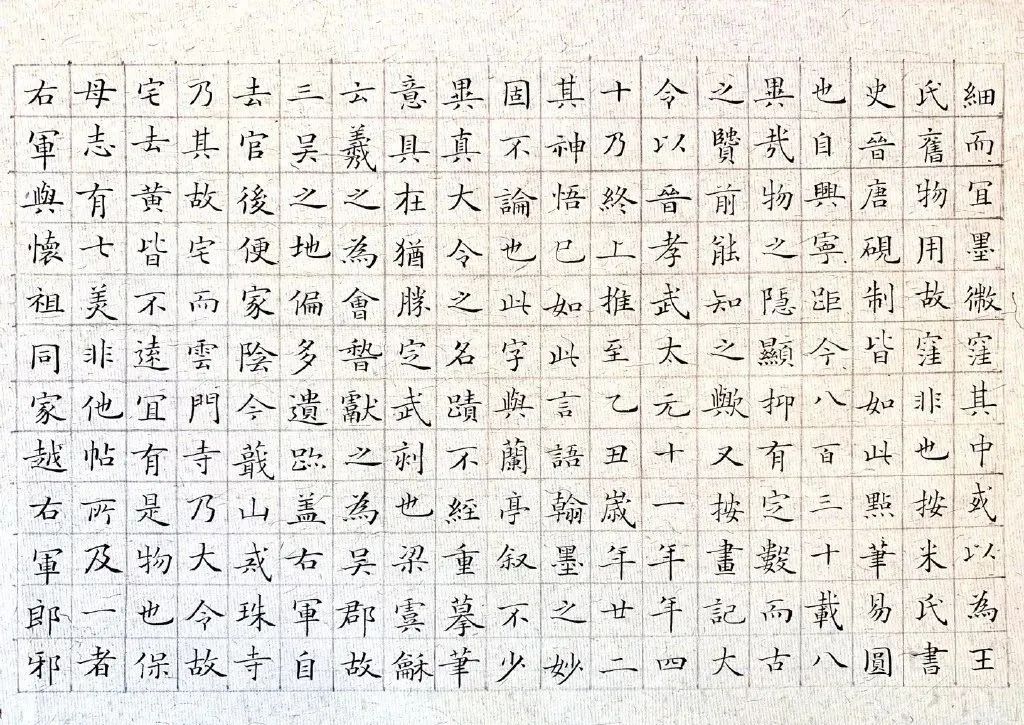 細而冝墨微窪其中或以為王
氏舊物用故窪非也按米氏書
史晉唐硯制皆如此點筆易圓
也自興寧距今八百三十載八
異哉物之隱顯抑有定數而古
之賢前能知之歟又按畫記大
令以晉孝武太元十一年年四
十乃終上推至乙丑歲年廿二
其神悟已如此言語翰墨之妙
固不論也此字與蘭亭叙不少
異真大令之名蹟不經重摹筆
意具在猶勝定武刻也梁虞龢
云羲之為會稽獻之為吳郡故
三吳之地偏多遺跡盖右軍自
去官後便家陰今蕺山戒珠寺
乃其故宅而雲門寺乃大令故
宅去黄皆不遠冝有是物也保
母志有七美非他帖所及一者
右軍與懷祖同家越右軍郎邪